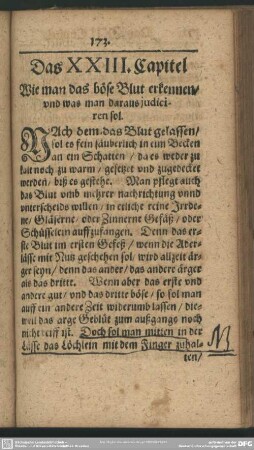 173.
Das XXIII. Capitel
Wie man das böse Blut erkennen/
vnd was man daraus judici-
ren sol.
NAch dem das Blut gelassen/
sol es fein säuberlich in ein Becken
an ein Schatten / da es weder zu
kalt noch zu warm / gesetzt vnd zugedecket
werden / biß es gestehe. Man pflegt auch
das Blut vmb mehrer nachrichtung vnnd
vnterscheids willen / in etliche reine Irrde-
ne / Gläserne / oder Zinnerne Gefäß / oder
Schüsselein auffzufangen. Denn das er-
ste Blut im ersten Gefeß / wenn die Ader-
lässe mit Nutz geschehen sol / wird allzeit är-
ger seyn / denn das ander / das andere ärger
als das dritte. Wenn aber das erste vnd
andere gut / vnd das dritte böse / so sol man
auff ein andere Zeit widerumb lassen / die-
weil das arge Geblüt zum außgange noch
nicht reiff ist. Doch sol man mitten in der
Lässe das Löchlein mit dem Finger zuhal-
ten/